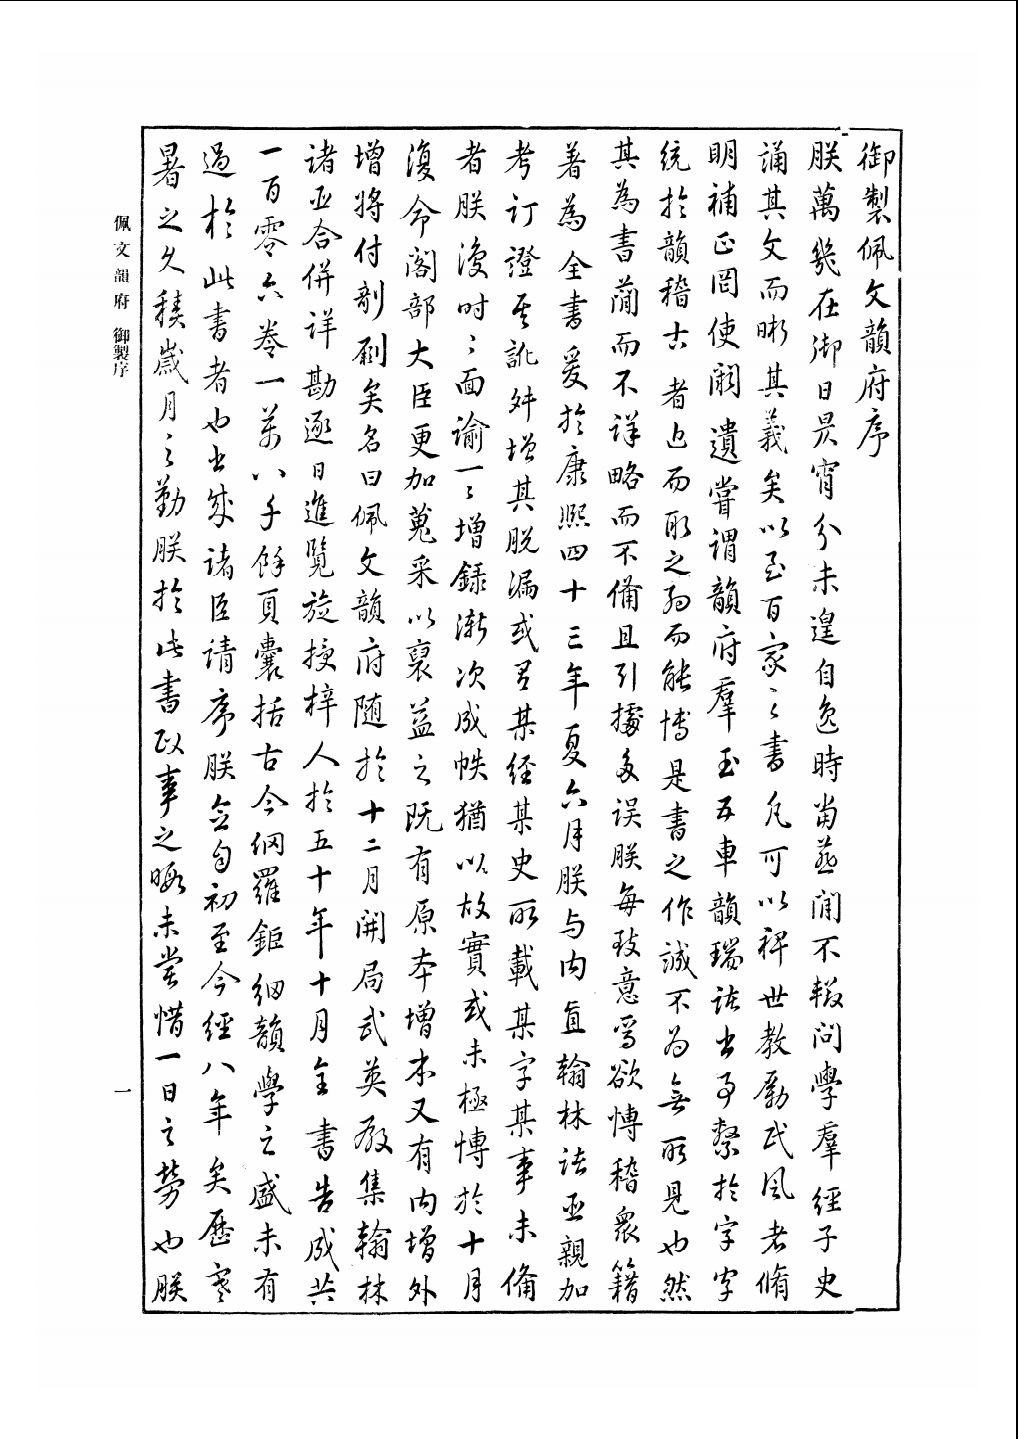 御製佩文韻府序
朕萬幾在御日昃宵分未遑自逸時當燕閒不輟問學羣經子史
誦其文而晰其義矣以至百家之書凡可以裨世教勵民風者脩
明補正罔使闕遺嘗謂韻府羣玉五車韻瑞諸書事繫於字字
統於韻稽古者近而取之約而能博是書之作誠不為無所見也然
其為書簡而不詳略而不備且引據多误朕每致意焉欲愽稽眾籍
著為全書爰於康熙四十三年夏六月朕与内直翰林諸臣親加
考訂證其訛舛增其脱漏或有某經某史所載某字某事未備
者朕復时〻面谕一〻增録渐次成帙猶以故實或未極愽於十月
復命閣部大臣更加蒐采以裒益之既有原本增本又有内增外
增將付剞劂矣名曰佩文韻府随於十二月開局武英殿集翰林
诸臣合併详勘逐日進覽旋授梓人於五十年十月全書告成共
一百零六卷一萬八千餘頁囊括古今網羅鉅细韻學之盛未有
過於此書者也書成诸臣请序朕念自初至今經八年矣歷寒
暑之久積歲月之勤朕於此書政事之暇未嘗惜一日之劳也朕
佩文韻府 御製序
一